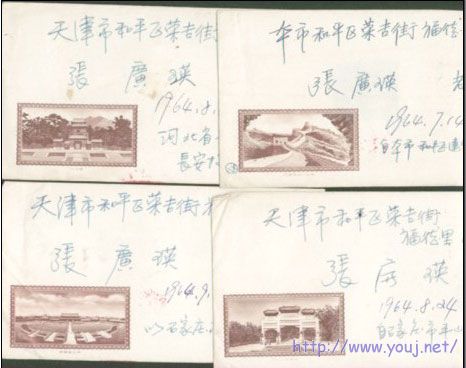 天津市和平区荣吉街
張 廣 瑛
1964.8.
河北省
長安
本市和平区荣吉街 福信
張 廣 瑛
1964.7.14
自本市和平区
天津市和平区荣吉街
張 廣 瑛
1964.9.
石家庄
天津市和平区荣吉街
福信里
張 廣 瑛
1964.8.24
自石家庄市
http://www.youj.net/